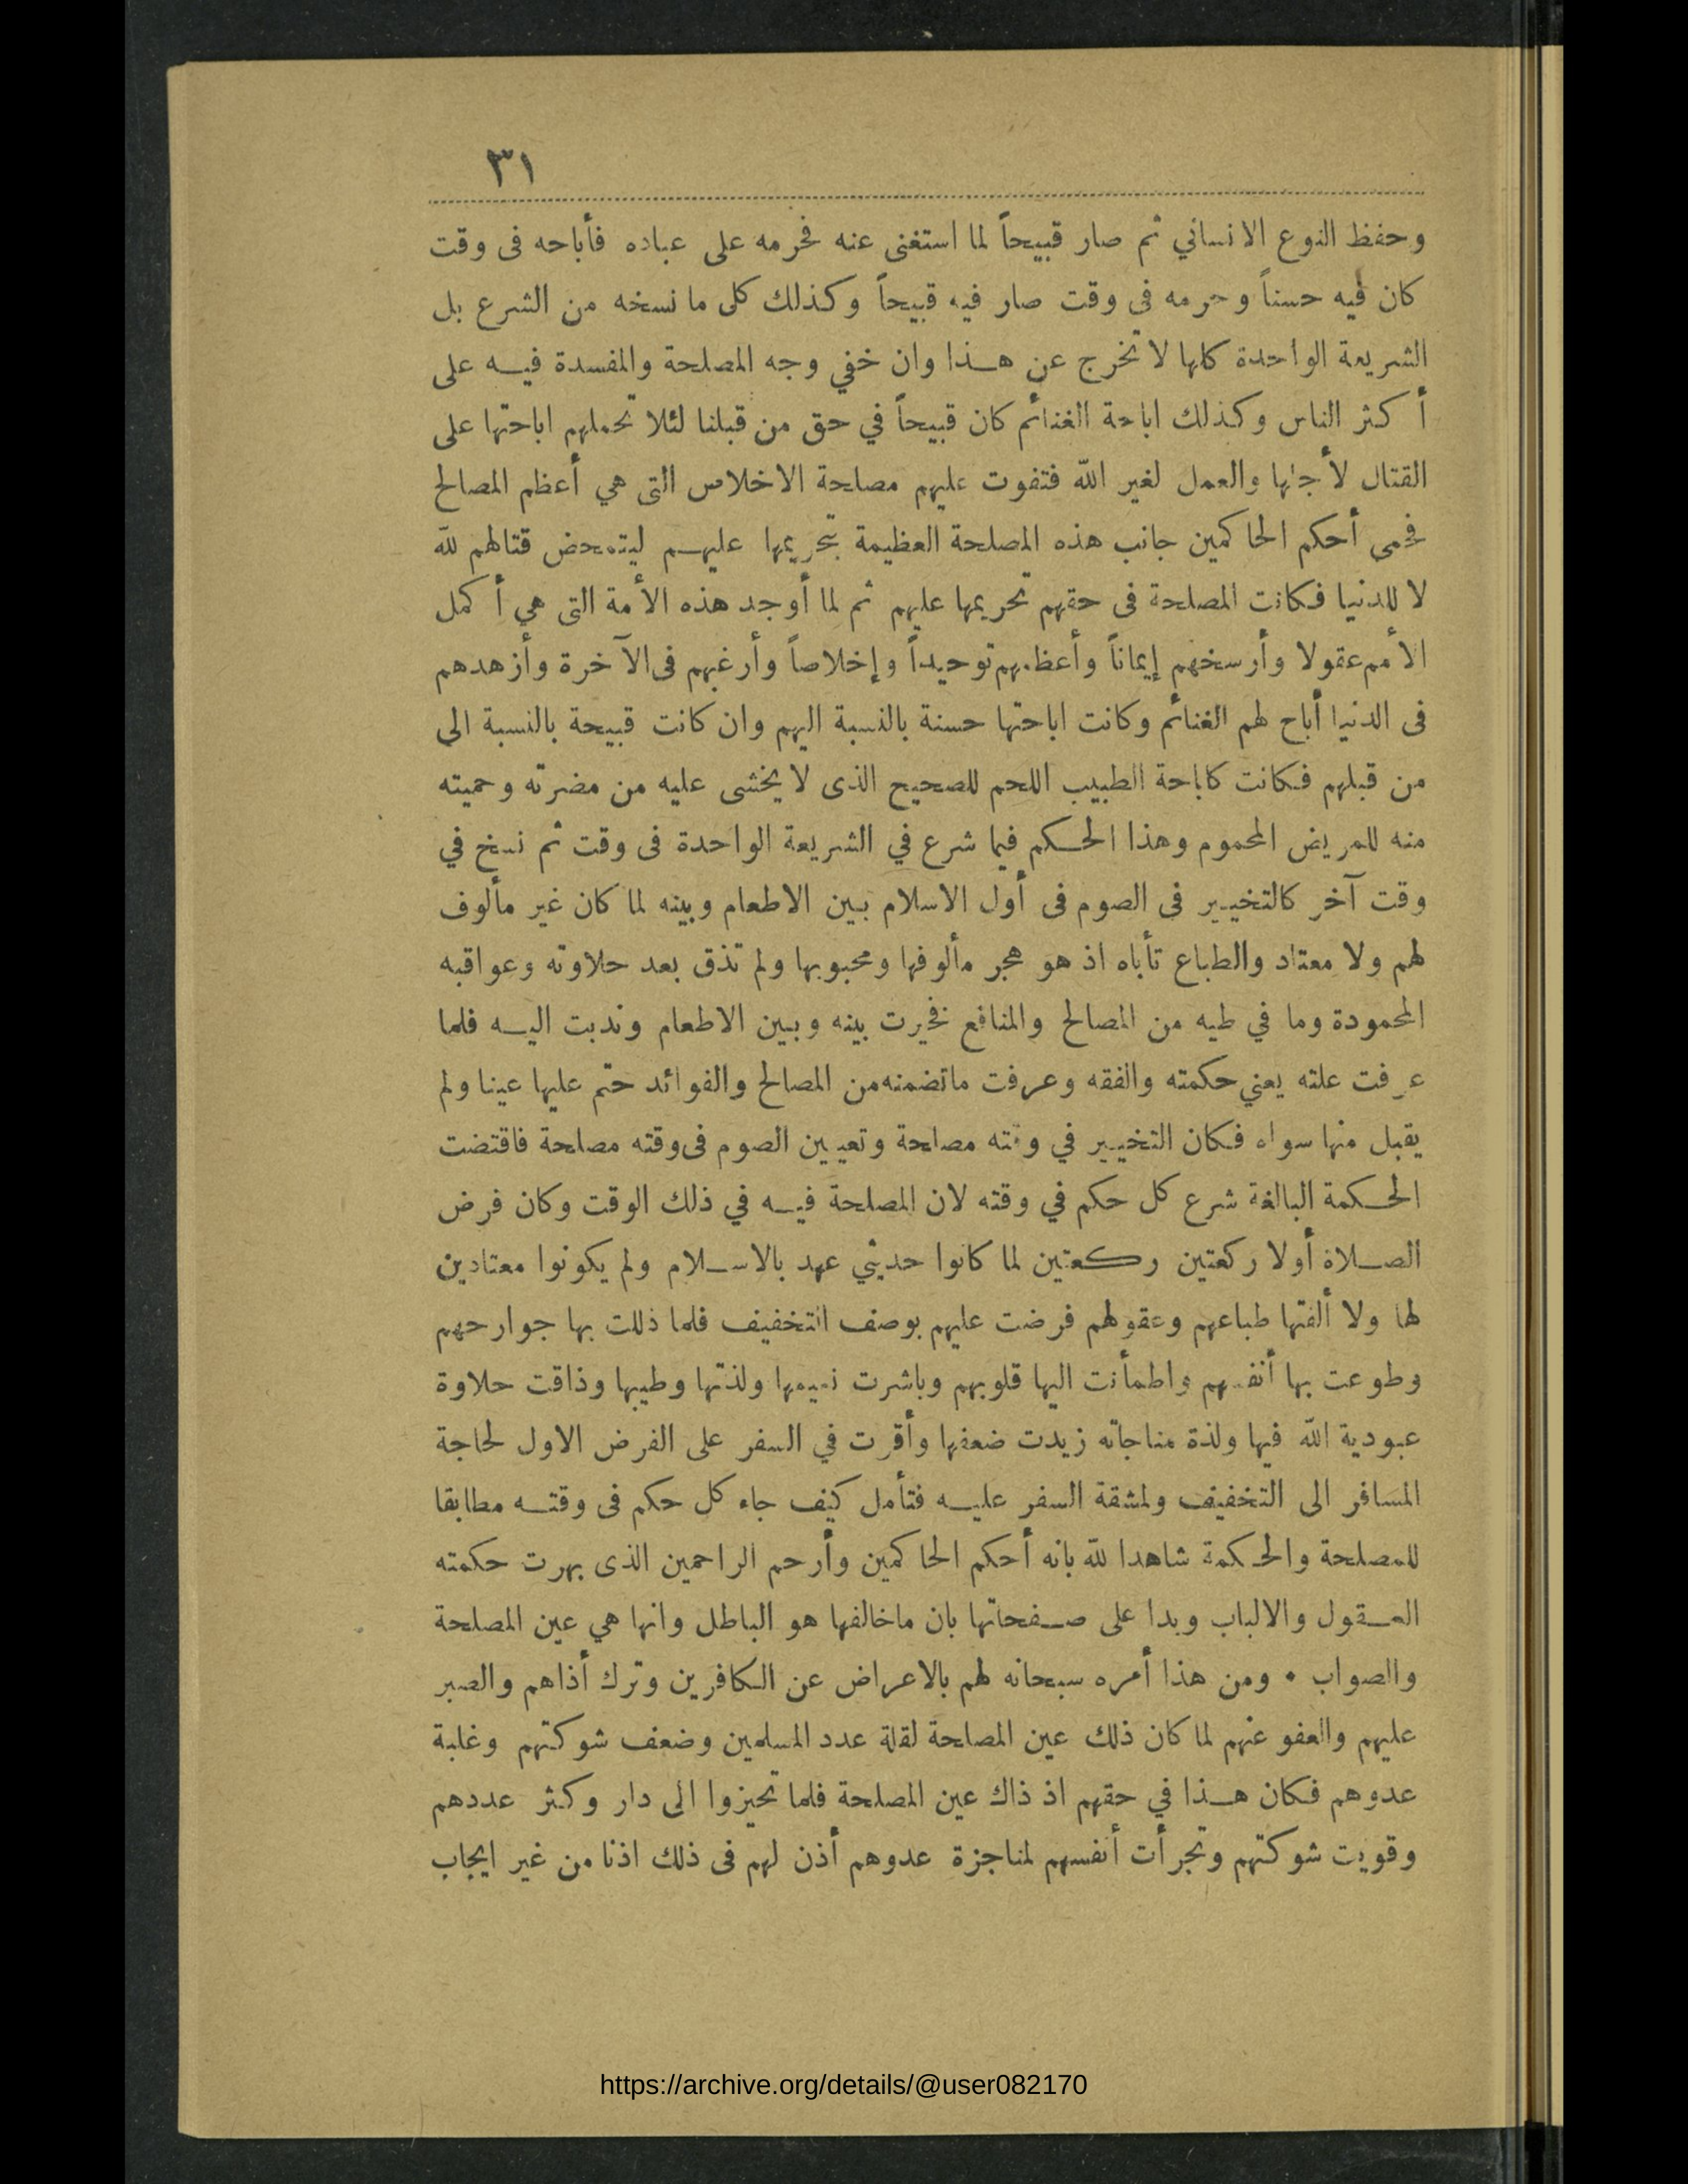 ٣١
وحفظ النوع الانساني ثم صار قبيحاً لما استغنى عنه فحرمه على عباده فأباحه فى وقت
كان فيه حسناً وحرمه فى وقت صار فيه قبيحاً وكذلك كل ما نسخه من الشرع بل
الشريعة الواحدة كلها لا تخرج عن هـذا وان خفي وجه المصلحة والمفسدة فيـه على
أكثر الناس وكذلك اباحة الغنائم كان قبيحاً في حق من قبلنا لئلا تحملهم اباحتها على
القتال لأجلها والعمل لغير الله فتفوت عليهم مصلحة الاخلاص التى هي أعظم المصالح
فحمى أحكم الحاكمين جانب هذه المصلحة العظيمة بتحريمها عليهـم ليتمحض قتالهم لله
لا للدنيا فكانت المصلحة فى حقهم تحريمها عليهم ثم لما أوجد هذه الأمة التى هي أكمل
الأمم عقولا وأرسخهم إيماناً وأعظمهم توحيداً وإخلاصاً وأرغبهم فى الآخرة وأزهدهم
فى الدنيا أباح لهم الغنائم وكانت اباحتها حسنة بالنسبة اليهم وان كانت قبيحة بالنسبة الى
من قبلهم فكانت كاباحة الطبيب اللحم للصحيح الذى لا يخشى عليه من مضرته وحميته
منه للمريض المحموم وهذا الحكم فيما شرع في الشريعة الواحدة فى وقت ثم نسخ في
وقت آخر كالتخيير فى الصوم فى أول الاسلام بين الاطعام وبينه لما كان غير مألوف
لهم ولا معتاد والطباع تأباه اذ هو هجر مألوفها ومحبوبها ولم تذق بعد حلاوته وعواقبه
المحمودة وما في طيه من المصالح والمنافع فخيرت بينه وبين الاطعام وندبت اليـه فلما
عرفت علته يعني حكمته والفقه وعرفت ماتضمنه من المصالح والفوائد حتم عليها عينا ولم
يقبل منها سواه فكان التخيير في وقته مصلحة وتعيين الصوم فى وقته مصلحة فاقتضت
الحكمة البالغة شرع كل حكم في وقته لان المصلحة فيـه في ذلك الوقت وكان فرض
الصـلاة أولا ركعتين ركعتين لما كانوا حديثي عهد بالاسـلام ولم يكونوا معتادين
لها ولا ألفتها طباعهم وعقولهم فرضت عليهم بوصف التخفيف فلما ذللت بها جوارحهم
وطوعت بها أنفسهم واطمأنت اليها قلوبهم وباشرت نعيمها ولذتها وطيبها وذاقت حلاوة
عبودية الله فيها ولذة مناجاته زيدت ضعفها وأقرت في السفر على الفرض الاول لحاجة
المسافر الى التخفيف ولمشقة السفر عليـه فتأمل كيف جاء كل حكم فى وقتـه مطابقا
للمصلحة والحكمة شاهدا لله بانه أحكم الحاكمين وأرحم الراحمين الذى بهرت حكمته
العـقول والالباب وبدا على صـفحاتها بان ماخالفها هو الباطل وانها هي عين المصلحة
والصواب • ومن هذا أمره سبحانه لهم بالاعراض عن الكافرين وترك أذاهم والصبر
عليهم والعفو عنهم لما كان ذلك عين المصلحة لقلة عدد المسلمين وضعف شوكتهم وغلبة
عدوهم فكان هـذا في حقهم اذ ذاك عين المصلحة فلما تحيزوا الى دار وكثر عددهم
وقويت شوكتهم وتجرأت أنفسهم لمناجزة عدوهم أذن لهم فى ذلك اذنا من غير ايجاب
https://archive.org/details/@user082170